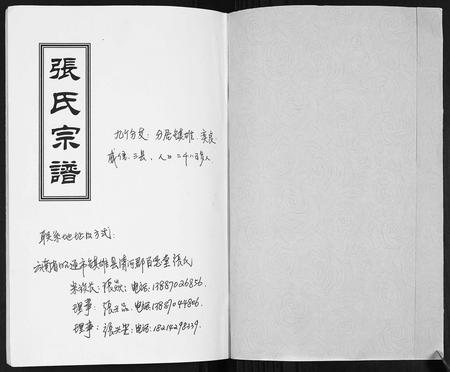 張氏宗譜
九个分支：分居镇雄、彝良
威信、三县，人口二千八百多人
联系地址及方式：
云南省昭通市镇雄县清河郡百忍堂张氏
电话：13887026856
理事：电话：13887044806
理事：电话：18214298239